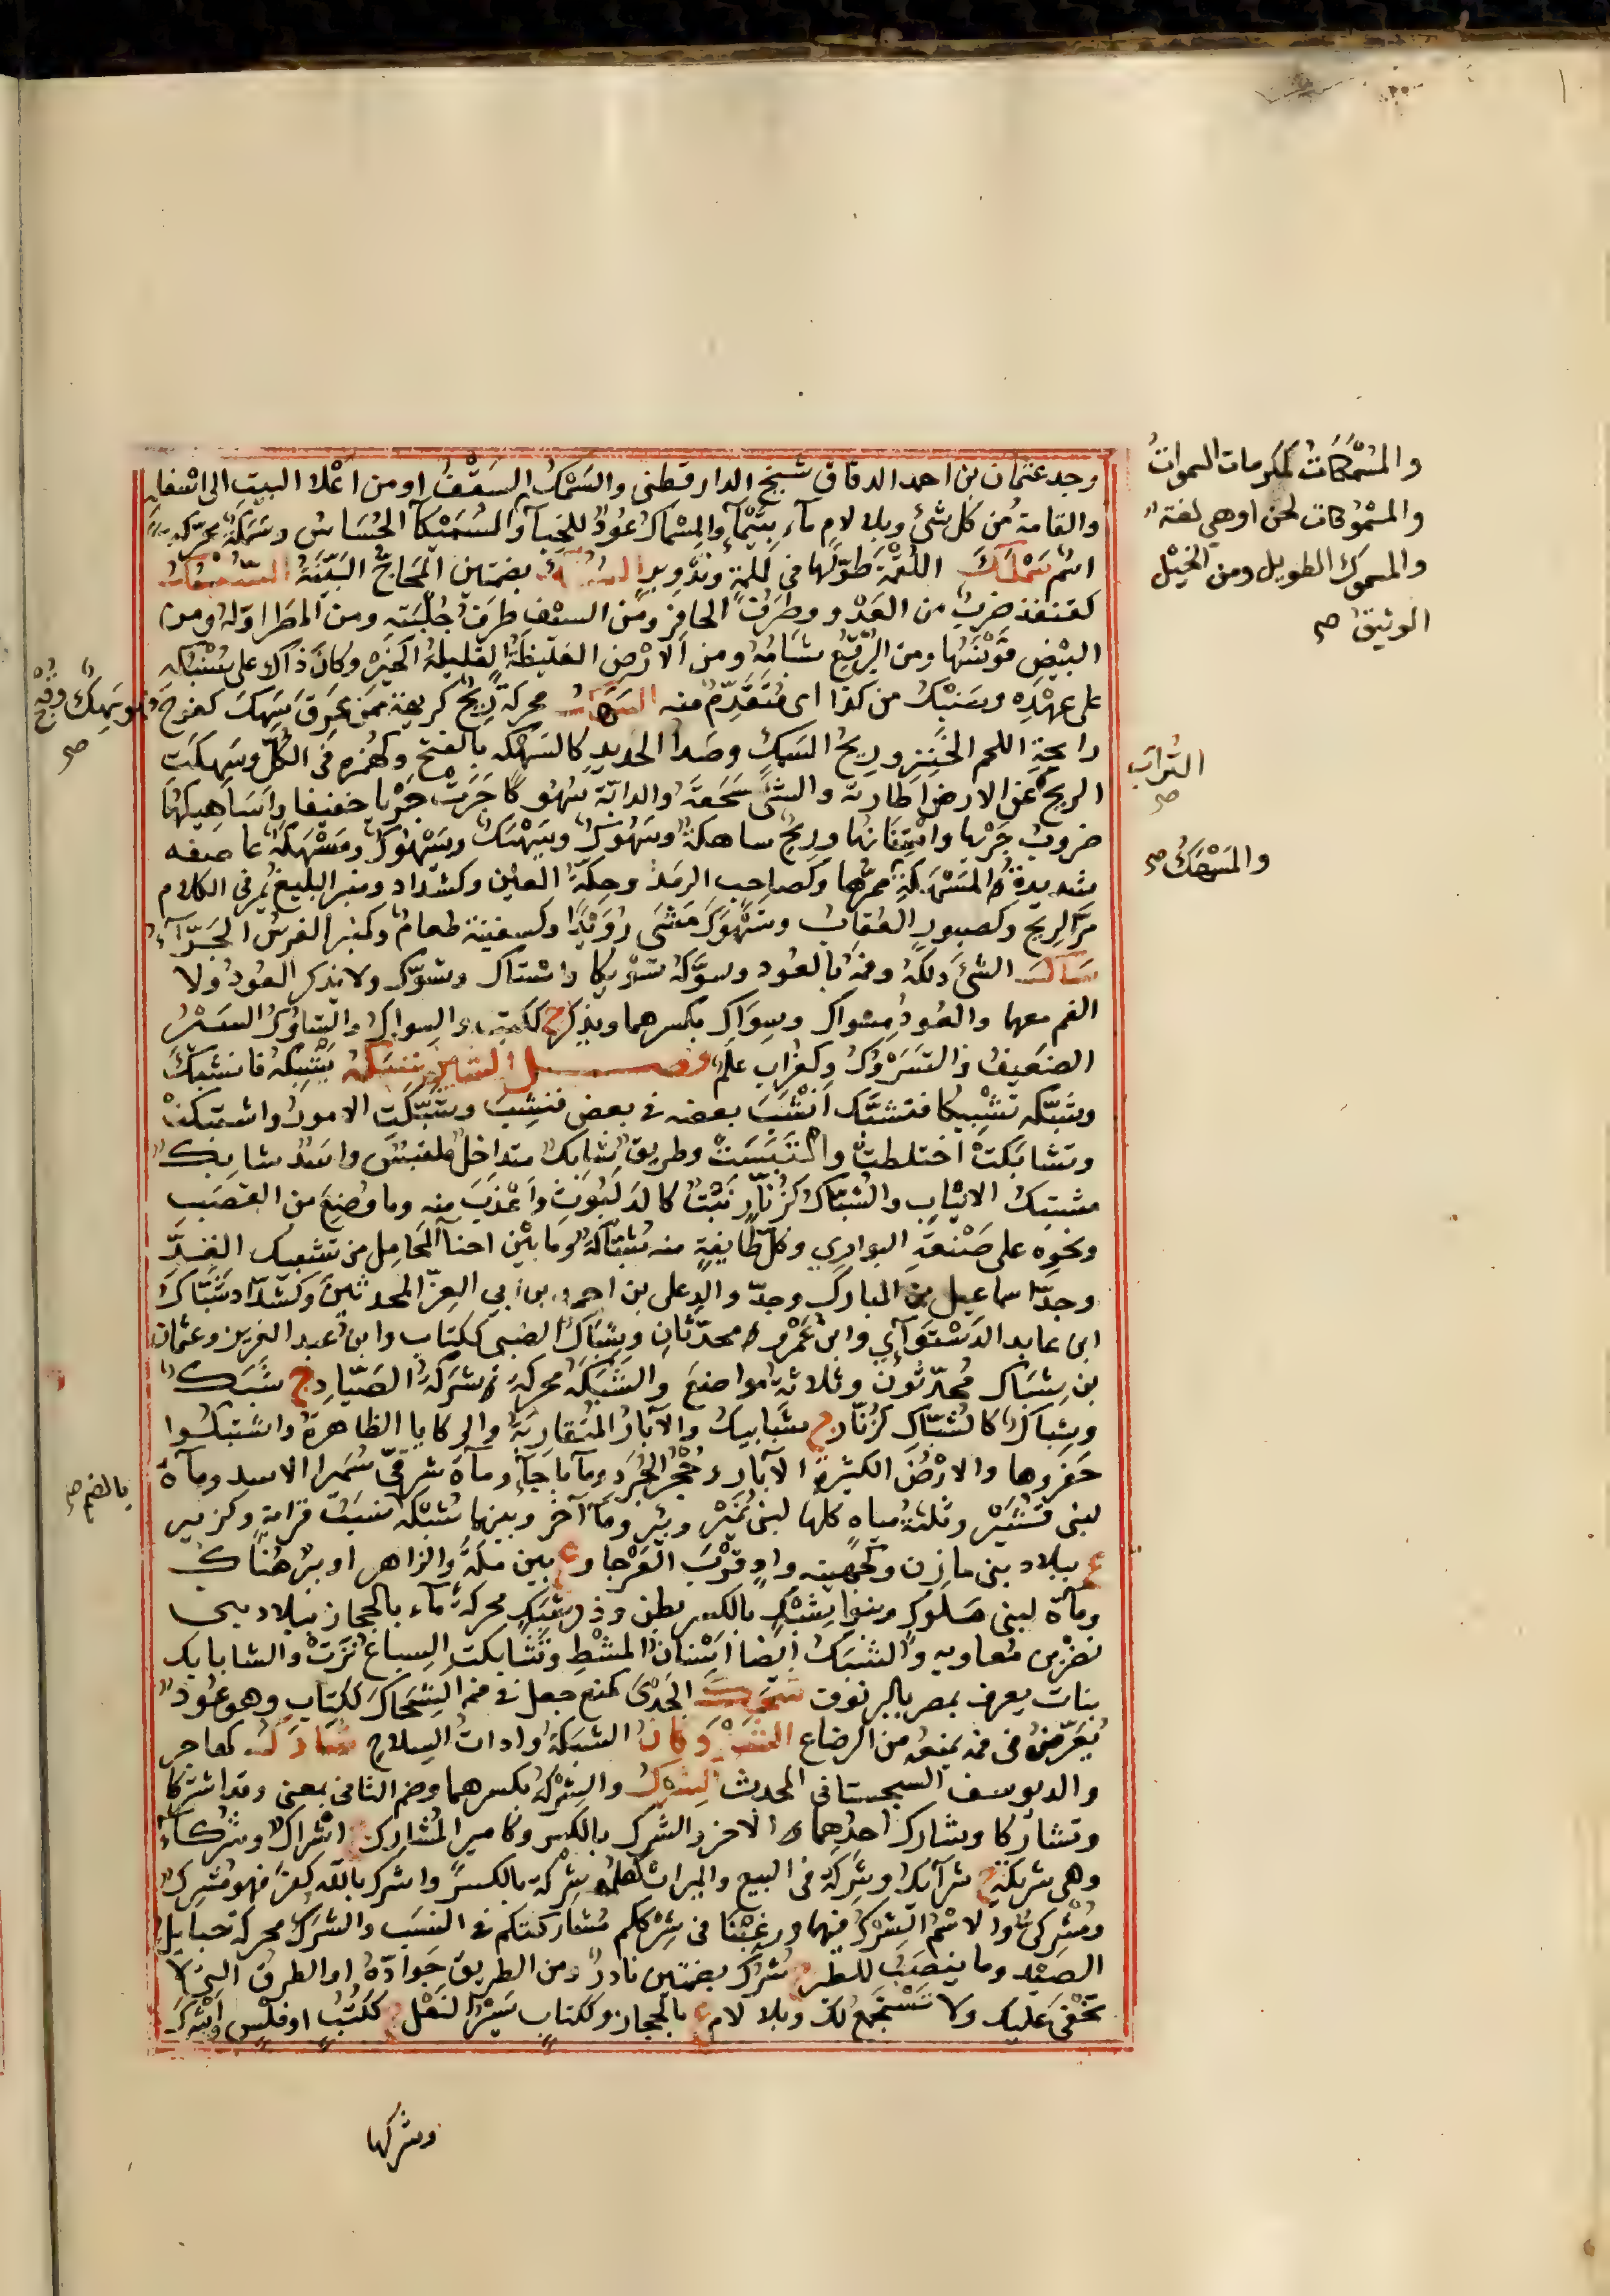 وجد عثمان بن احمد الدقاق شيخ الدارقطني والسَمْكُ السَقْفُ او من اَعْلا البيت الى اسْفله
والقامة من كل شئ وبلا لام مآء بتَيْمآء والمِسْماك عُودٌ للخِبآء والسُمَيْكآ الحُسَاسُ وسَمَكَةُ محرّكة
اسْم سَمْلَكَ اللُقْمَة طَوَّلَها في تَلمْلمةٍ وتَدْوِيرٍ السُنُكُ بضمتين المَحَاجُّ البَيِّنَةُ السُنْبُكُ
كقنفذ ضربٌ من العَدْو وطَرَفُ الحافِرِ ومن السيف طَرَفُ حِلْيَتِهِ ومن المطَر اوّلهُ ومن
البَيْضِ قَوْنَسُها ومن البُرْقُعِ شَبَامُهُ ومن الارْضِ الغليظَةُ القليلةُ الخَيْرِ وكان ذاك على سُنْبُكِه
على عهْدِه وسُنْبُكٌ من كذا اى مُتَقَدِّمٌ منه السَهَكُ محركةً رِيحٌ كريهة ممّن عَرِقَ سَهِكَ كفرِحَ فهو سَهِكٌ
رايحةِ اللحم الخَنِزِ وريحُ السَمَكِ وصَدأ الحديدِ كالسَهْكَه بالفتح وكهُمَزه في الكُلّ وسَهَكَت
الريحُ عن الارضِ اطارته والشئَ سَحَقَهُ والدابّة سُهُوكًا جَرَتْ جَرْيا خفيفا واَسَاهِيكُها
ضروبُ جَرْيها واسْتِنَانُها وريحٌ ساهكةٌ وسَهُوكٌ وسَيْهَكٌ وسَيْهُوكٌ ومَسْهَكَةٌ عاصفه
شديدةٌ والمَسْهَكَةُ مَمَرُّها وكصاحِبٍ الرمَدُ وحِكّةُ العين وكشدّادٍ ومنبرٍ البليغُ يمر في الكلام
مَرَّ الريح وكصبورٍ العُقابُ وتَسَهْوَكَ مَشَى رُوَيْدًا وكسفينة طعامٌ وكمنبر الفرسُ الجَرّاء
سَاكَ الشئَ دلكهُ وفمه بالعود وسوّكهُ تسْويكا واستاك وتسوّك ولا يذكر العُودُ ولا
الفم معهما والعُودُ مِسْواك وسِوَاك بكسرهما ويذكر ج ككتب والسِواكُ والتساوُكُ السَيْرُ
الضعيفُ والتسَرْوُكُ وكغرابٍ علَم فصــل الشين شَبَكَهُ يَشْبِكُهُ فانشَبَكَ
وشَبَّكَه تشْبِيكا فتشبّك اَنْشَبَ بعضه في بعض فنشِبَ وشَبَّكَت الامورُ واشتبكتْ
وتشابَكتْ اختلطتْ والتَبَسَتْ وطريقٌ شابكٌ متداخلٌ ملتبسٌ واسَدٌ شابكٌ
مشتبِكُ الانيابِ والشُبّاكُ كزُنّارٍ نَبْتٌ كالدَلَبُوثِ وأعْذَبَ منه وما وُضِعَ من القَصَبِ
ونحوِه على صَنْعَةِ البواري وكلّ طايفةٍ منه شُبّاكةٌ وما بيْن احنآء المَحَامِل من تشبيك القِدّ
وجَدّ اسماعيل بن المبارك وجدّ والد على بن احمد بن ابي العِزّ المحدثين وكشدّاد شَبّاكُ
ابن عابد الدَسْتَوَآئي وابن عَمْرٍو محدّثان وشِبَاكُ الضبي ككتاب وابن عبد العزيز وعثمان
بن شِبَاك مُحدّثون وثلاثة مواضعَ والشَبَكةُ محركةً شَرَكَةُ الصَيّاد ج شَبَكٌ
وشِبَاكٌ كالشُبّاك كزُنّار ج شَبَابيك والآبارُ المتقاربَةُ والركايا الظاهرةُ واشتبكوا
حَفَروها والارْضُ الكثيرةُ الآبار وحُجْرُ الجُرَذِ ومآء باجَأٍ ومآءٌ شرقيّ سُمَيْرآء لاسد ومآءٌ
لبنى قُشَيْر وثلثة مياهٍ كلها لبنى نُمَيْر وبئر ومآءٌ آخر وبينهما شُبْكَةُ نَسَبٍ قرابة وكزبير
ع ببلاد بنى مازن وكجُهينه وادٍ قُرْبَ العَرْجَا وع بين مكّةَ والزاهر او بئرٌ هُناك
ومآءٌ لبنى سَلُول وبنوا شِبْكٍ بالكسر بطن وذو شَبَكٍ محركةً مآء بالحجاز ببلاد بنى
نصْر بن معاوية والشَبَكُ ايضا اَسْنانُ المُشْطِ وتشابكتِ السِباعُ نَزَتْ والشابابك
نبات يعرف بمصر بالبرنوف شَحَكَ الجَدْىَ كمنع جعل في فمه الشِحَاكَ ككتابٍ وهو عُودٌ
يُعَرَّضُ في فمه يمنعه من الرضاع الشَوْدَكانُ الشبَكَةُ وادات السِلاحِ شَارَكُ كهاجر
والد يوسف السجستانى المحدث الشِرْكُ والشِرْكةُ بكسرهما وضم الثانى بمعنى وقد اشتركا
وتشاركا وشارك احدهما الآخر والشرك بالكسر وكامير المُشارِك ج اشْراكٌ وشُرَكآءُ
وهي شريكة ج شرآئكُ وشَرِكَهُ في البيع والميراث كعلمه شِرْكة بالكسر واشرك بالله كفرَ فهو مُشرِك
ومُشْرِكىّ والاسْمُ الشِرْكُ فيهما ورغِبْنَا في شِرْككم مُشاركتكم في النسَب والشَرَكُ محركةً حبايلُ
الصيْد وما يُنصَبُ للطير ج شُرُك بضمتين نادرٌ ومن الطريق جَوادُّهُ او الطرقُ التي لا
تَخْفَى عليك ولا تَسْتَجْمِعُ لك وبلا لام ع بالحجاز وككتابٍ سَيْرُ النعْل ج ككُتُبٍ او فَلْسٍ اَشْرَكَ
وشركها
والمُسْمَكاتُ كمكرمات السمواتُ
والمسْمُوكات لحن او هى لغة
والمسموك الطويل ومن الخيْل
الوثيقُ صح
التُرابَ
صح
والمَسْهَكُ صح
بالضم صح